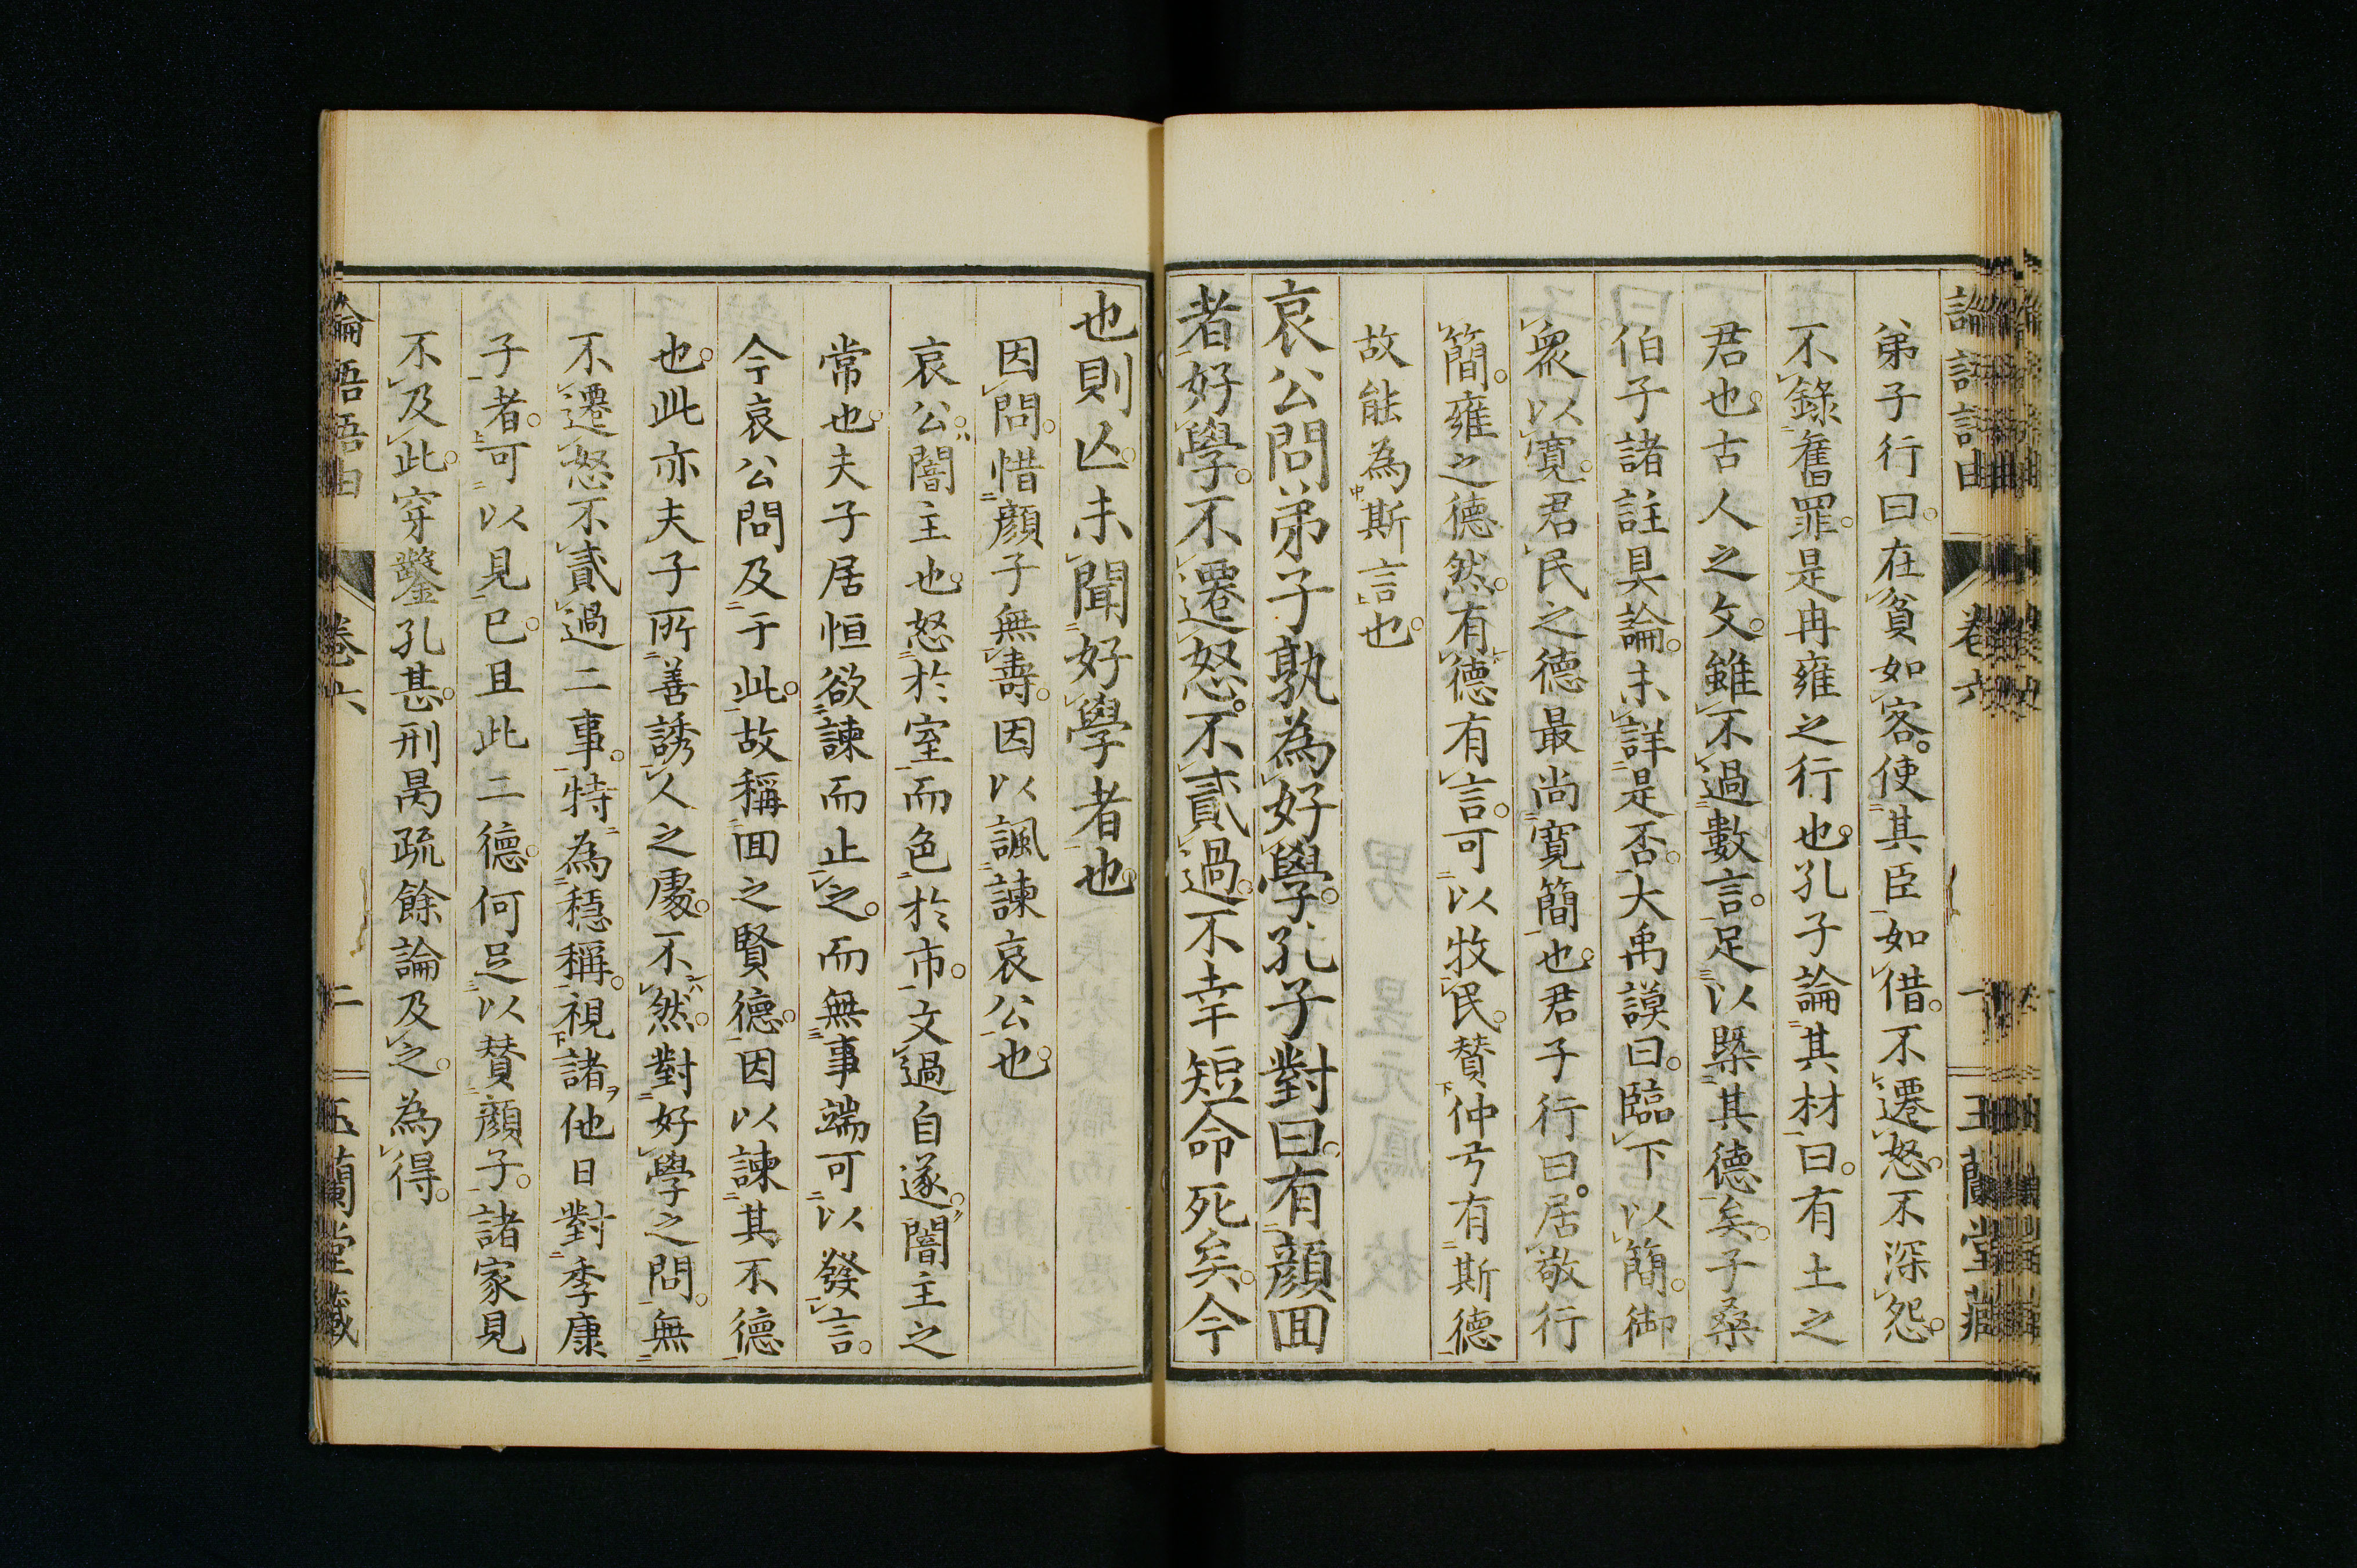 論語語由 卷六 一 玉蘭堂藏
弟子行曰。在貧如客。使其臣如借。不遷怒。不深怨。
不錄舊罪。是冉雍之行也。孔子論其材曰。有土之
君也。古人之文。雖不過數言。足以槩其德矣。子桑
伯子諸註具論。未詳是否。大禹謨曰。臨下以簡。御
衆以寬。君民之德最尚寬簡也。君子行曰。居敬行
簡。雍之德然。有德有言。可以牧民。賛仲弓有斯德
故能為斯言也。
哀公問弟子孰為好學。孔子對曰。有顔回
者好學。不遷怒。不貳過。不幸短命死矣。今
也則亾。未聞好學者也。
因問。惜顔子無壽。因以諷諫哀公也。
哀公。闇主也。怒於室而色於市。文過自遂。闇主之
常也。夫子居恒欲諫而止之。而無事端可以發言。
今哀公問及于此。故稱回之賢德。因以諫其不德
也。此亦夫子所善誘人之處。不然。對好學之問。無
不遷怒不貳過二事。特為穩稱。視諸他日對季康
子者。可以見已。且此二德。何足以賛顔子。諸家見
不及此。穿鑿孔甚。刑昺疏餘論及之。為得。
論語語由 卷六 二 玉蘭堂藏